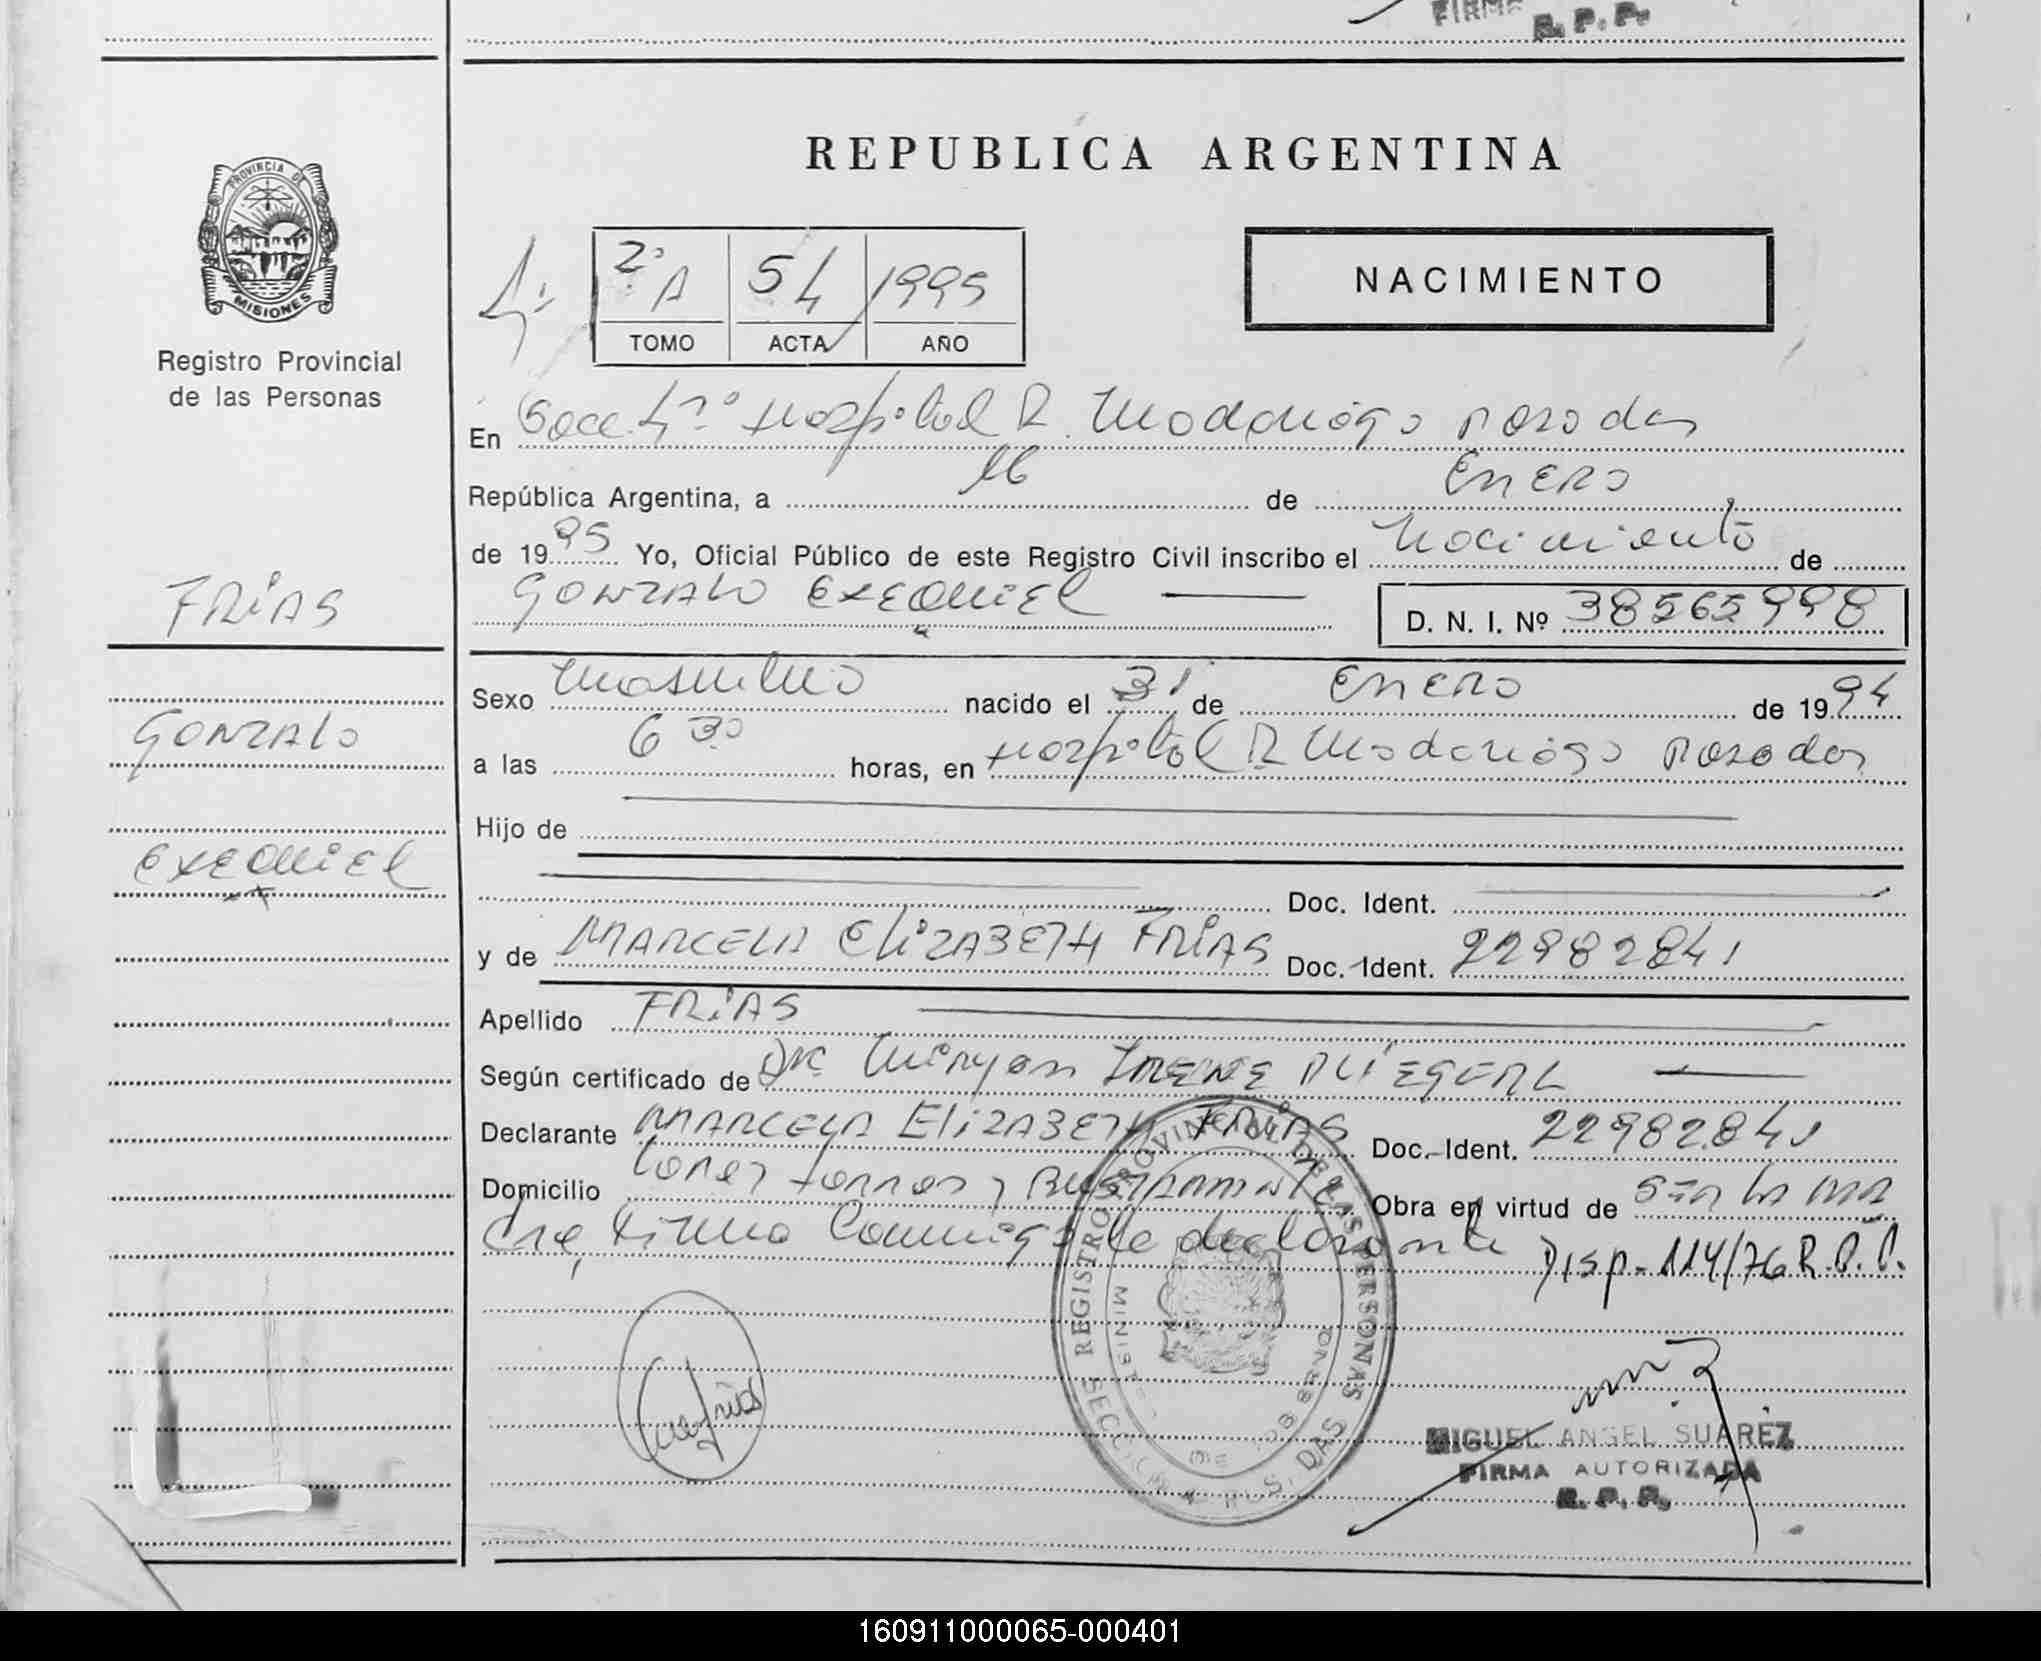 FIRMA
R. P. P.
PROVINCIA DE
MISIONES
Registro Provincial
de las Personas
REPUBLICA ARGENTINA
2º A 54 1995
TOMO ACTA AÑO
NACIMIENTO
En Secc. 4ª Hospital R. Madariaga Posadas
República Argentina, a 16 de Enero
de 1995 Yo, Oficial Público de este Registro Civil inscribo el Nacimiento de
GONZALO EXEQUIEL D. N. I. Nº 38565998
FRIAS
Sexo Masculino nacido el 31 de Enero de 1994
GONZALO
a las 6 30 horas, en Hospital R Madariaga Posadas
Hijo de
EXEQUIEL
Doc. Ident.
y de MARCELA ELIZABETH FRIAS Doc. Ident. 22982841
Apellido FRIAS
Según certificado de Dra Miryan IRENE
Declarante MARCELA ELIZABETH FRIAS Doc. Ident. 22982841
Domicilio torres y Obra en virtud de
firma Conmigo la declarante Disp. 114/76 R.P.P.
REGISTRO PROVINCIAL DE LAS PERSONAS
MIGUEL ANGEL SUAREZ
FIRMA AUTORIZADA
R. P. P.
160911000065-000401